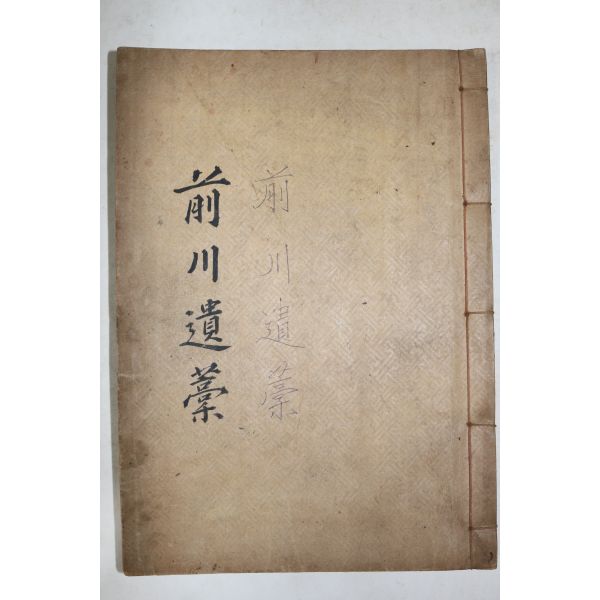 前川遺藁
前川遺藁